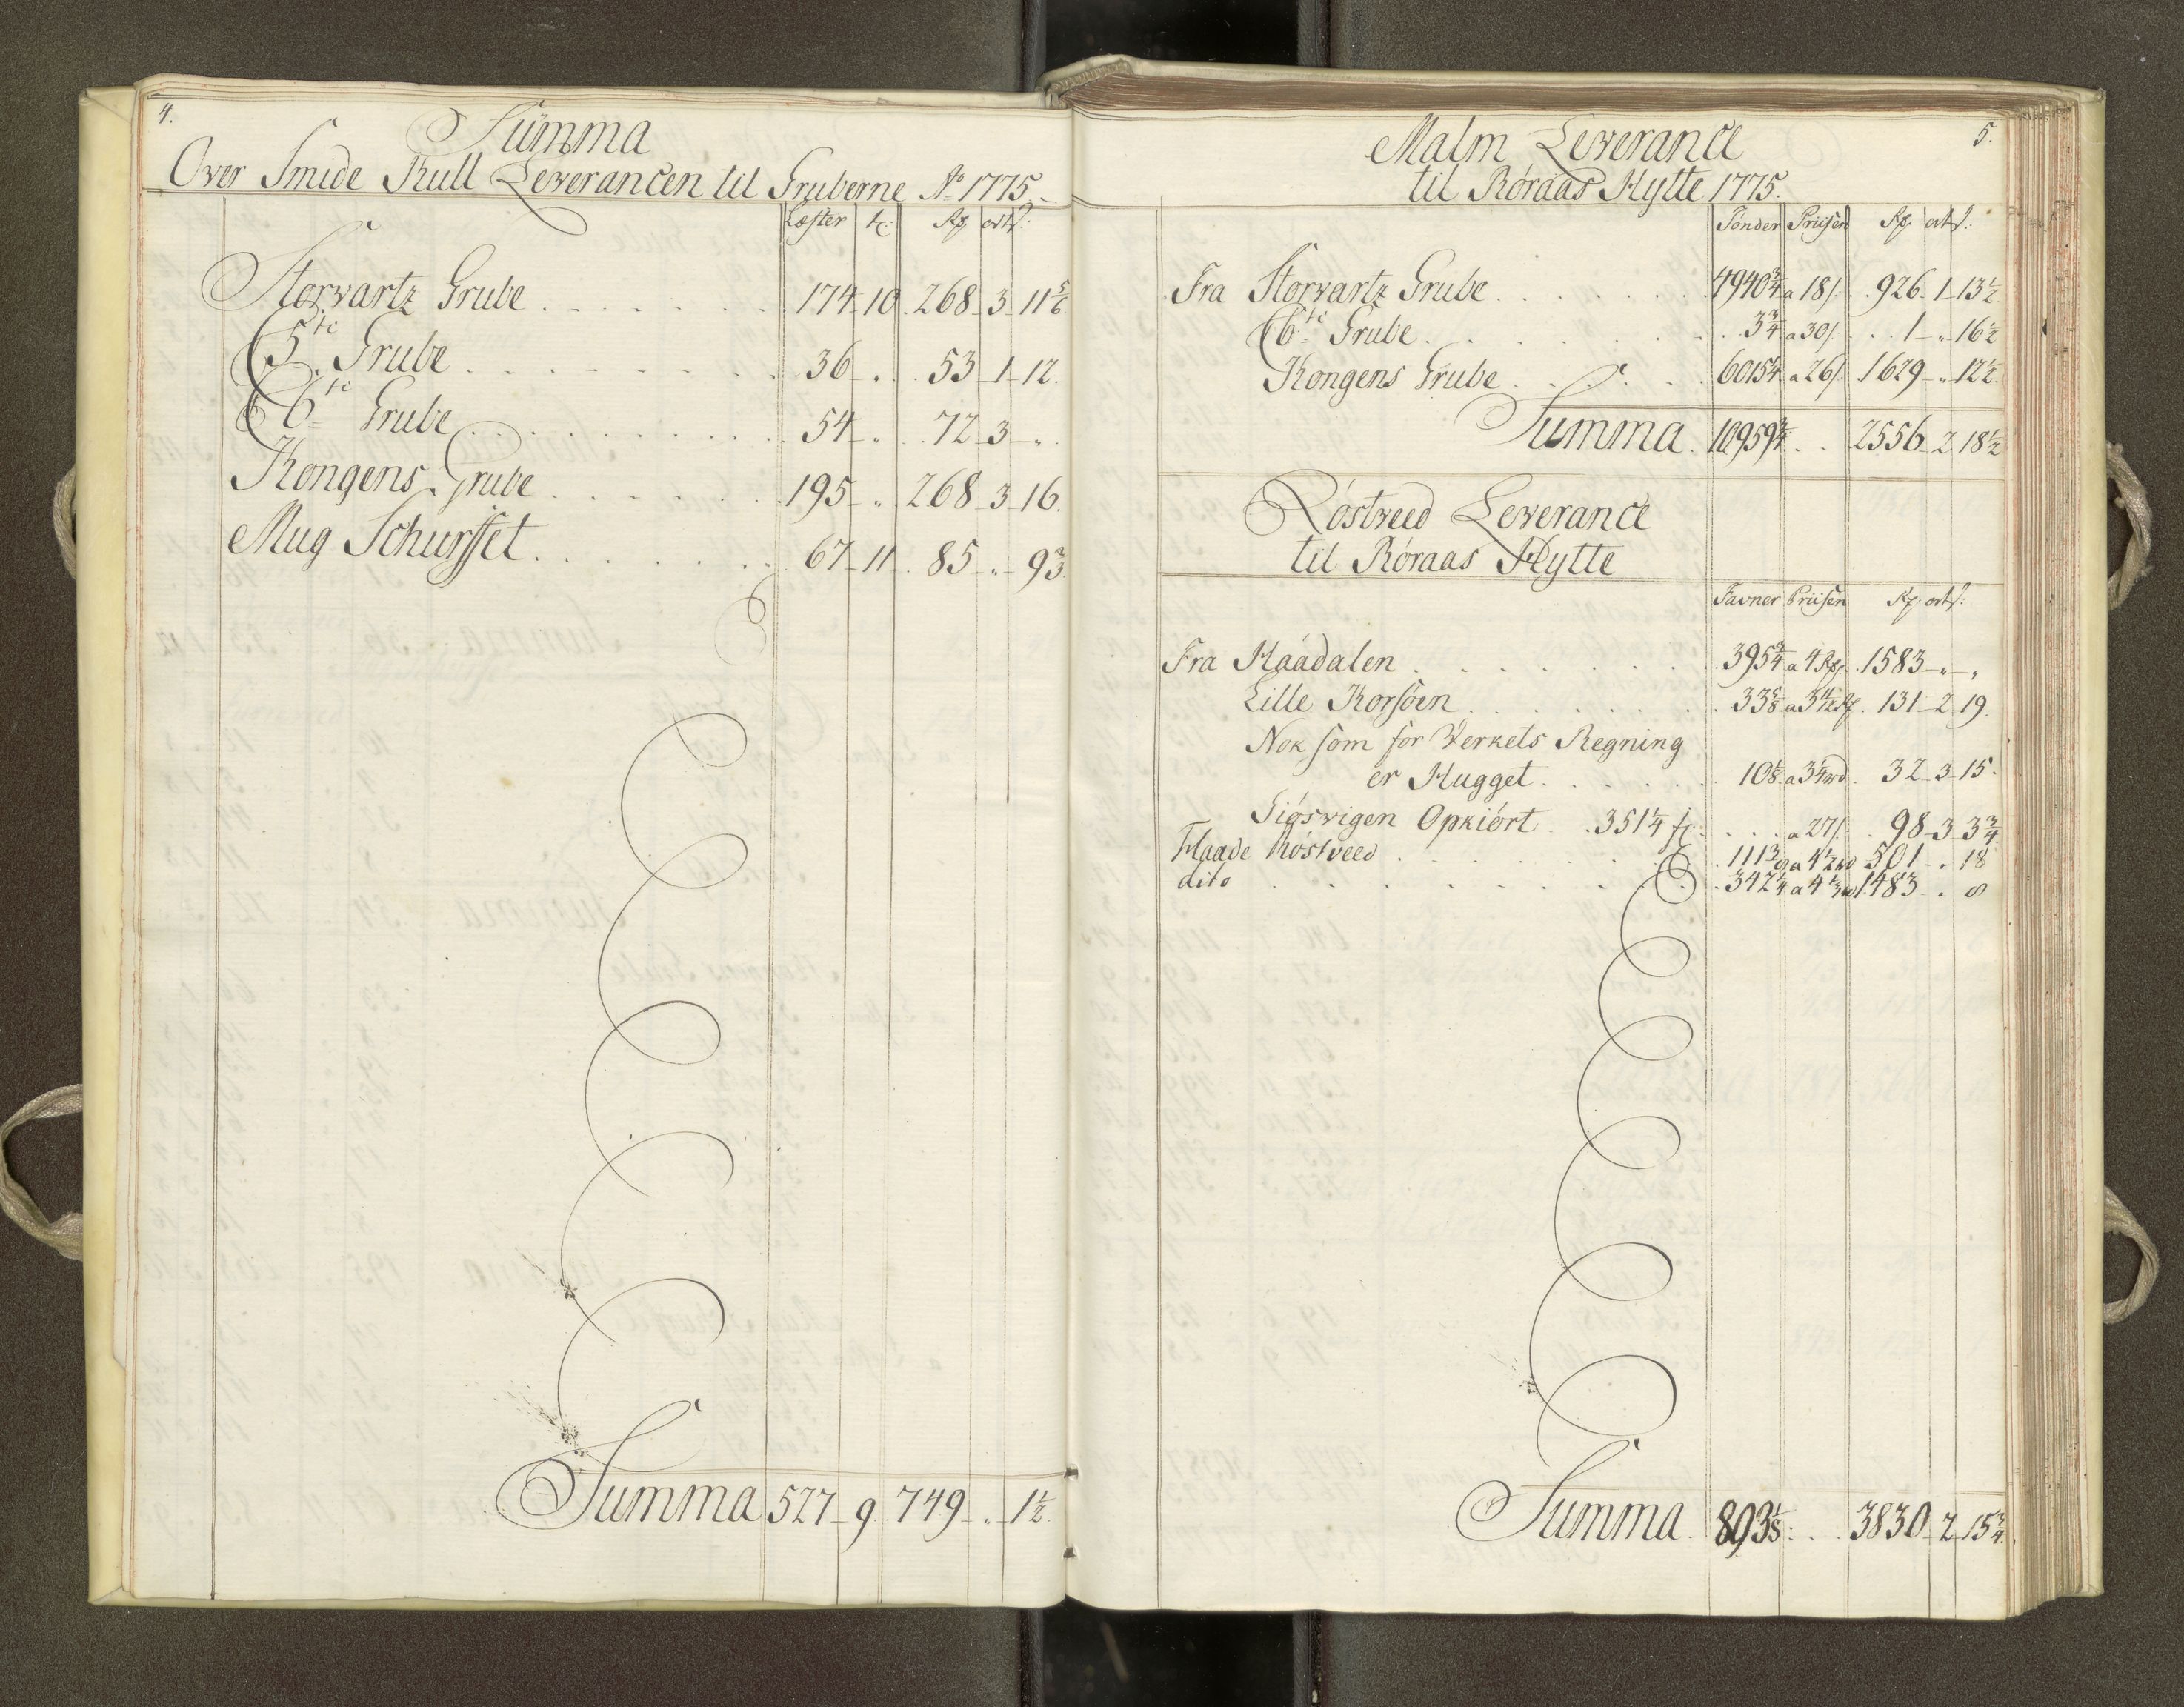 4.
Summa
Over Smide Kull Leverancen til Gruberne Ao 1775.
Læster tr: Rd ort s:
Storvartz Grube 174 10 268 3 11 5/6
5te Grube 36 " 53 1 12.
6te Grube 54 " 72 3 "
Kongens Grube 195 " 268 3 16.
Mug Schurffet 67 11 85 " 9 2/3
Summa 527 9 749 " 1 1/2
5.
Malm Leverance
til Røraas Hytte 1775.
Tönder Priisen Rd ort s:
Fra Storvartz Grube 4940 3/4 a 18s 926 1 13 1/2
6te Grube 3 3/4 a 30s 1 " 16 1/2
Kongens Grube 6015 1/4 a 26s 1629 " 12 1/2
Summa 10959 3/4 2556 2 18 1/2
Röstveed Leverance
til Røraas Hytte
Favner Priisen Rd ort s:
Fra Haadalen 395 3/4 a 4 Rd 1583 " "
Lille Korsöen 33 5/8 a 3 11/12 Rd 131 2 19
Nok som for Verkets Regning
er Hugget 10 1/8 a 3 1/4 rd 32 3 15.
Siösvigen Opkiört 351 1/4 f: a 27s 98 3 3 3/4
Flaade Röstveed 111 3/8 a 4 1/2 rd 501 " 18
dito 342 1/4 a 4 1/3 rd 1483 " 8
Summa 893 1/8 3830 2 15 3/4